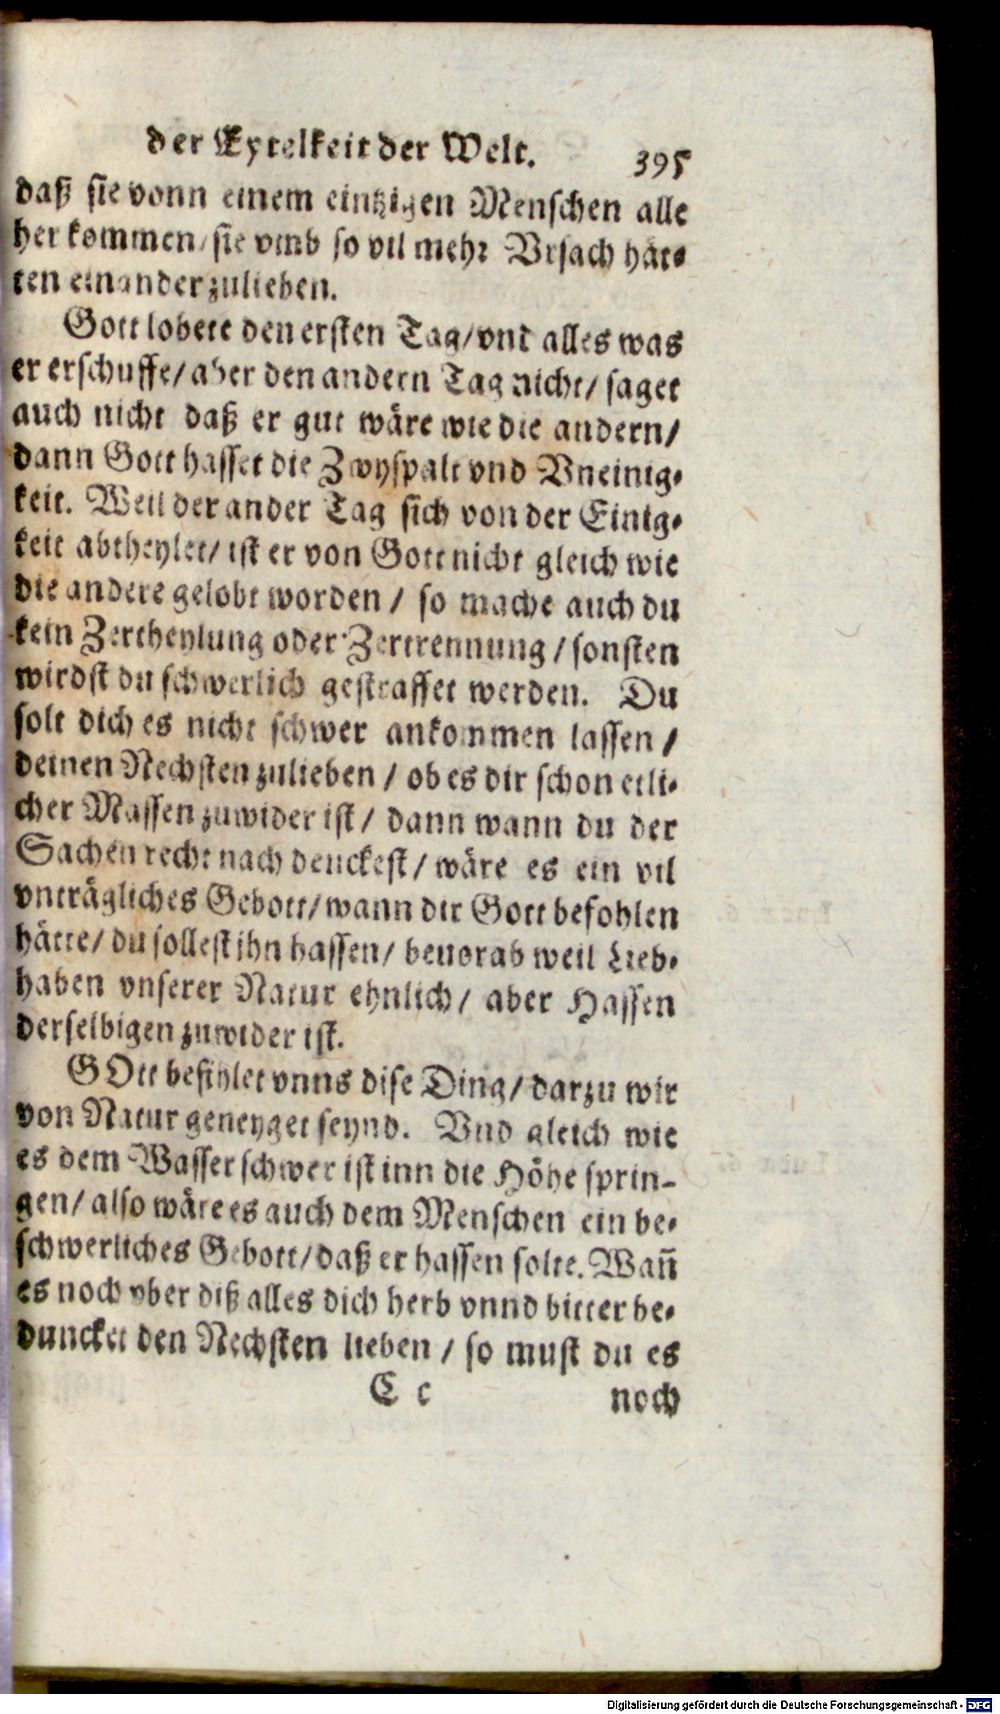 der Eytelkeit der Welt. 395
daß sie vonn einem eintzigen Menschen alle
her kommen / sie vmb so vil mehr Vrsach hät⸗
ten einander zulieben.
Gott lobete den ersten Tag / vnd alles was
er erschuffe / aber den andern Tag nicht / saget
auch nicht daß er gut wäre wie die andern /
dann Gott hasset die Zwyspalt vnd Vneinig⸗
keit. Weil der ander Tag sich von der Einig⸗
keit abtheylet / ist er von Gott nicht gleich wie
die andere gelobt worden / so mache auch du
kein Zertheylung oder Zertrennung / sonsten
wirdst du schwerlich gestraffet werden. Du
solt dich es nicht schwer ankommen lassen /
deinen Nechsten zulieben / ob es dir schon etli⸗
cher Massen zuwider ist / dann wann du der
Sachen recht nach denckest / wäre es ein vil
vnträgliches Gebott / wann dir Gott befohlen
hätte / du sollest ihn hassen / beuorab weil Lieb⸗
haben vnserer Natur ehnlich / aber Hassen
derselbigen zuwider ist.
GOtt befihlet vnns dise Ding / darzu wir
von Natur geneyget seynd. Vnd gleich wie
es dem Wasser schwer ist inn die Höhe sprin-
gen / also wäre es auch dem Menschen ein be⸗
schwerliches Gebott / daß er hassen solte. Wañ
es noch vber diß alles dich herb vnnd bitter be⸗
duncket den Nechsten lieben / so must du es
C c noch
Digitalisierung gefördert durch die Deutsche Forschungsgemeinschaft - DFG